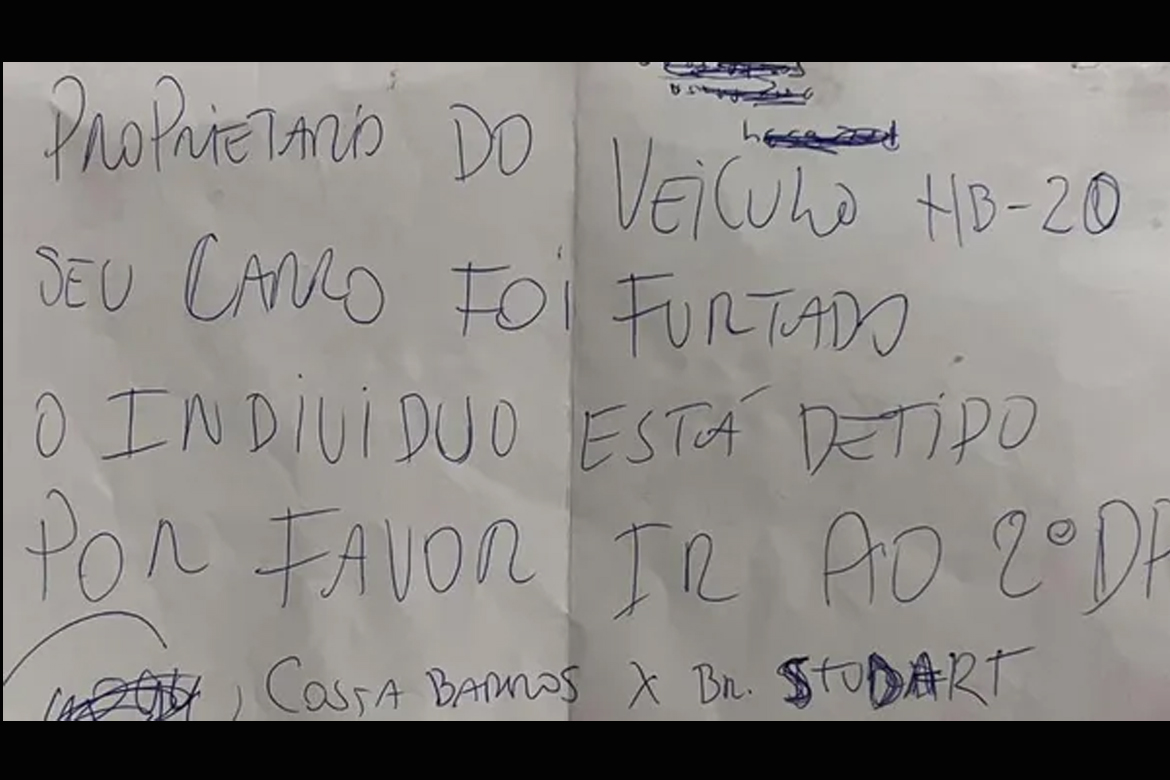 PROPRIETARIO DO VEÍCULO HB-20
SEU CARRO FOI FURTADO
O INDIVIDUO ESTÁ DETIDO
POR FAVOR IR AO 2º DP
, COSTA BARROS X BR. STUDART